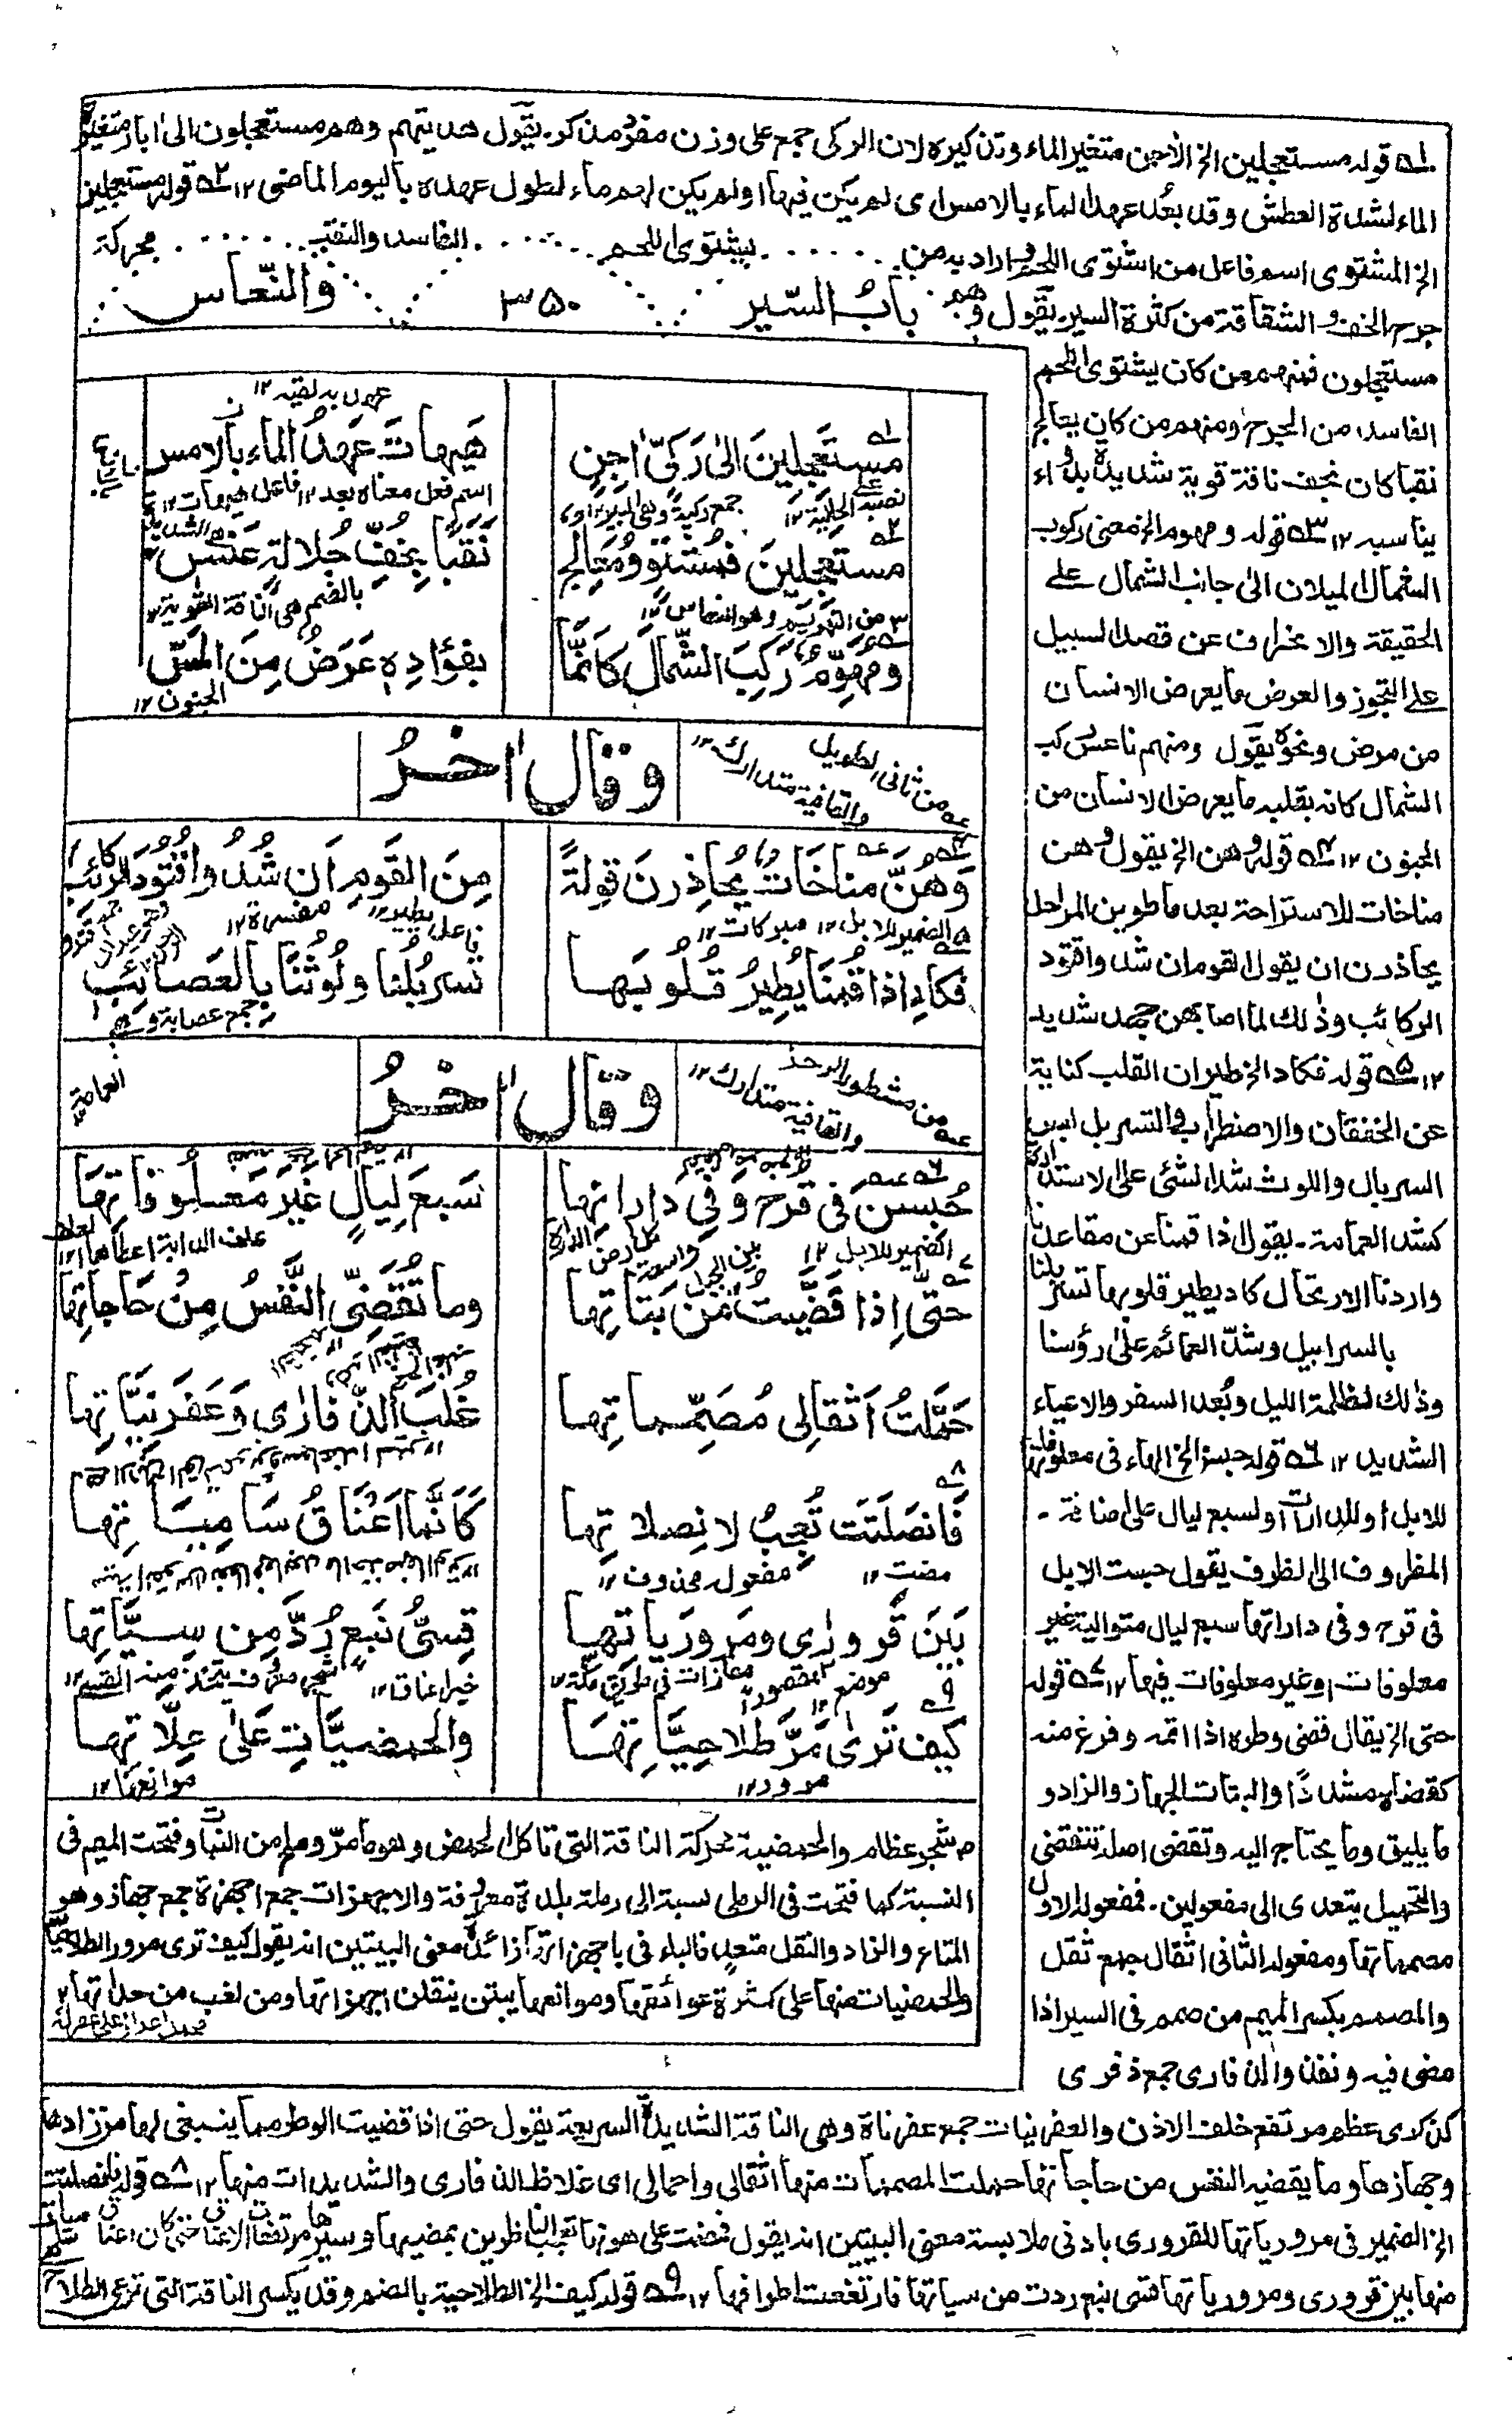 ۱ قوله مستعجلين الخ الأجن متغير الماء وتذكيره لان الركى جمع على وزن مفرد مذكر يقول هديتهم وهم مستعجلون الى ابار متغيرة
الماء لشدة العطش وقد بعُد عهد الماء بالامس اى لم يكن فيها او لم يكن لهم ماء لطول عهده باليوم الماضى ۱۲ ۲ قوله مستعجلين
الخ المشتوى اسم فاعل من اشتوى اللحم واراد به من . . . . . . . يشتوى اللحم . . . . . . الفاسد والنقب . . . . . . محركة
جرح الخف والشقاقة من كثرة السير يقول وهم
باب السّير
۳۵۰
والنّعاس
مستعجلون فمنهم من كان يشتوى اللحم
الفاسد من الجرح ومنهم من كان يعالج
نقبا كان بخف ناقة قوية شديدة بدواء
يناسبه ۱۲ ۳ قوله ومهوم الخ معنى ركوب
الشمال الميلان الى جانب الشمال على
الحقيقة والانحراف عن قصد السبيل
على التجوز والعرض ما يعرض الانسان
من مرض ونحوه يقول ومنهم ناعس ركب
الشمال كانه بقلبه ما يعرض الانسان من
الجنون ۱۲ ۴ قوله وهن الخ يقول وهن
مناخات للاستراحة بعد ما طوين المراحل
يحاذرن ان يقول القوم ان شدوا قتود
الركائب وذلك لما اصابهن جهد شديد
۱۲ ۵ قوله فكاد الخ طيران القلب كناية
عن الخفقان والاضطراب والتسربل لبس
السربال واللوث شد الشئى على الاستدارة
كشد العمامة ـ يقول اذا قمنا عن مقاعدنا
واردنا الارتحال كاد يطير قلوبها تسربلنا
بالسرابيل وشدّ العمائم على رؤسنا
وذلك لظلمة الليل وبُعد السفر والاعياء
الشديد ۱۲ ۶ قوله حبسن الخ الهاء فى معلوفاتها
للابل او للدارات او لسبع ليال على اضافة ـ
المظروف الى الظرف يقول حبست الابل
فى قرح وفى داراتها سبع ليال متوالية غير
معلوفات او غير معلوفات فيها ۱۲ ۷ قوله
حتى الخ يقال قضى وطره اذا اتمه وفرغ منه
كقضاه مشددًا والبتات الجهاز والزاد و
ما يليق وما يحتاج اليه وتقضى اصله تتقضى
والتحميل يتعدى الى مفعولين ـ فمفعوله الاول
مصمماتها ومفعوله الثانى اثقال جمع ثقل
والمصمم بكسر الميم من صمم فى السير اذا
مضى فيه ونفذ والذفارى جمع ذفرى
عهدى به لقيته ۱۲
مستعجلينَ الىٰ رَكىّ اٰجِنٍ
هَيهاتَ عَهدُ الماء بالامس
جمع ركية وهى البير ۱۲
اسم فعل معناه بعد ۱۲ فاعل هيهات ۱۲
مستعجلينَ فمُشتوٍ ومُعَالجٍ
نَقَبًا بِخُفّ جُلالةٍ عَنْسٍ
۳ من التهويم وهو النعاس ۱۲
بالضم هى الناقة القوية ۱۲
ومُهوِّمٌ رَكِبَ الشِّمالَ كاَنمَّا
بفؤادِهٖ عَرَضٌ مِنَ المَسِّ
الجنون ۱۲
وقال اٰخرُ
عه من ثانى الطويل
والقافية متدارك ۱۲
وَهُنَّ مناخَاتٌ يُحاذِرنَ قولةً
مِنَ القَومِ اَن شُدُّوا قتُودَ الركائب
الضمير للابل ۱۲ مبركات ۱۲
فاعل يطير ۱۲
مفسرة ۱۲
فكاد اذا قُمنَا يُطِيرُ قُلُوبَهَا
تسربُلنا ولُوثُنَا بالعَصائب
جمع عصابة وهى
العمامة ۱۲
وقال اٰخرُ
عه من مشطور الرجز
والقافية متدارك ۱۲
حُبسنَ فى قرحٍ وَفى داراتها
سَبعَ لِيالٍ غَيرَ مَعلوفاتهَا
الضمير للابل ۱۲
علف الدابة اعطاها ۱۲
حتّى اِذا قَضَّيتُ مِن بَتاتِها
وما تُقَضّى النَّفسُ مِنْ حَاجاتِها
حَمَّلتُ اَثقالِى مُصَمِّماتِها
غُلبَ الذَّفارٰى وَعَفَرنَيَّاتها
فَانصَلَتَت تُعجِبُ لانصِلاتِها
كَانَّما اَعْنَاقُ سَامِيَاتِها
مضت ۱۲
مفعوله محذوف ۱۲
بَينَ قَرورٰى ومَرورَياتها
قِسىُّ نَبعٍ رُدَّ مِن سِيَّاتِها
موضع ۱۲
مفازات فى طريق مكة ۱۲
خبر اعناق ۱۲
شجر معروف يتخذ منه القسى ۱۲
كيفَ تَرٰى مَرَّ طُلاحِيَّاتِهَا
والحَمَضيَّاتِ عَلىٰ عِلّاتِها
مرور ۱۲
موانعها ۱۲
شجر عظام والحمضية محركة الناقة التى تاكل الحمض وهو ما مرّ وملح من النبات وفتحت الميم فى
النسبة كما فتحت فى الرملى نسبة الى رملة بلدة معروفة والاجهزات جمع اجهزة جمع جهاز وهو
المتاع والزاد والنقل متعد فالباء فى باجهزاتها زائدة معنى البيتين انه يقول كيف ترى مرور الطلاحيّات
والحمضيات منها على كثرة عوائقها وموانعها يبتن ينقلن اجهزاتها ومن لغب من حداتها ۱۲
محمد اعزاز على غفر له
كذكرى عظم مرتفع خلف الاذن والعفرنيات جمع عفرناة وهى الناقة الشديدة السريعة يقول حتى اذا قضيت الوطر مما ينبغى لها من زادها
وجهازها وما يقضيه النفس من حاجاتها حملت المصممات منها اثقالى واحمالى اى غلاظ الذفارى والشديدات منها ۱۲ ۸ قوله فانصلتت
الخ الضمير فى مرورياتها للقرورى بادنى ملابسة معنى البيتين انه يقول فمضت على هونها تعجب الناظرين بمضيها وسيرها مرتفعة الاعناق حتى كان اعناق ساميات
منها بين قرورى ومرورياتها قسى نبع ردت من سياتها فارتفعت اطرافها ۱۲ ۹ قوله كيف الخ الطلاحية بالضم وقد يكسر الناقة التى ترعى الطلاح